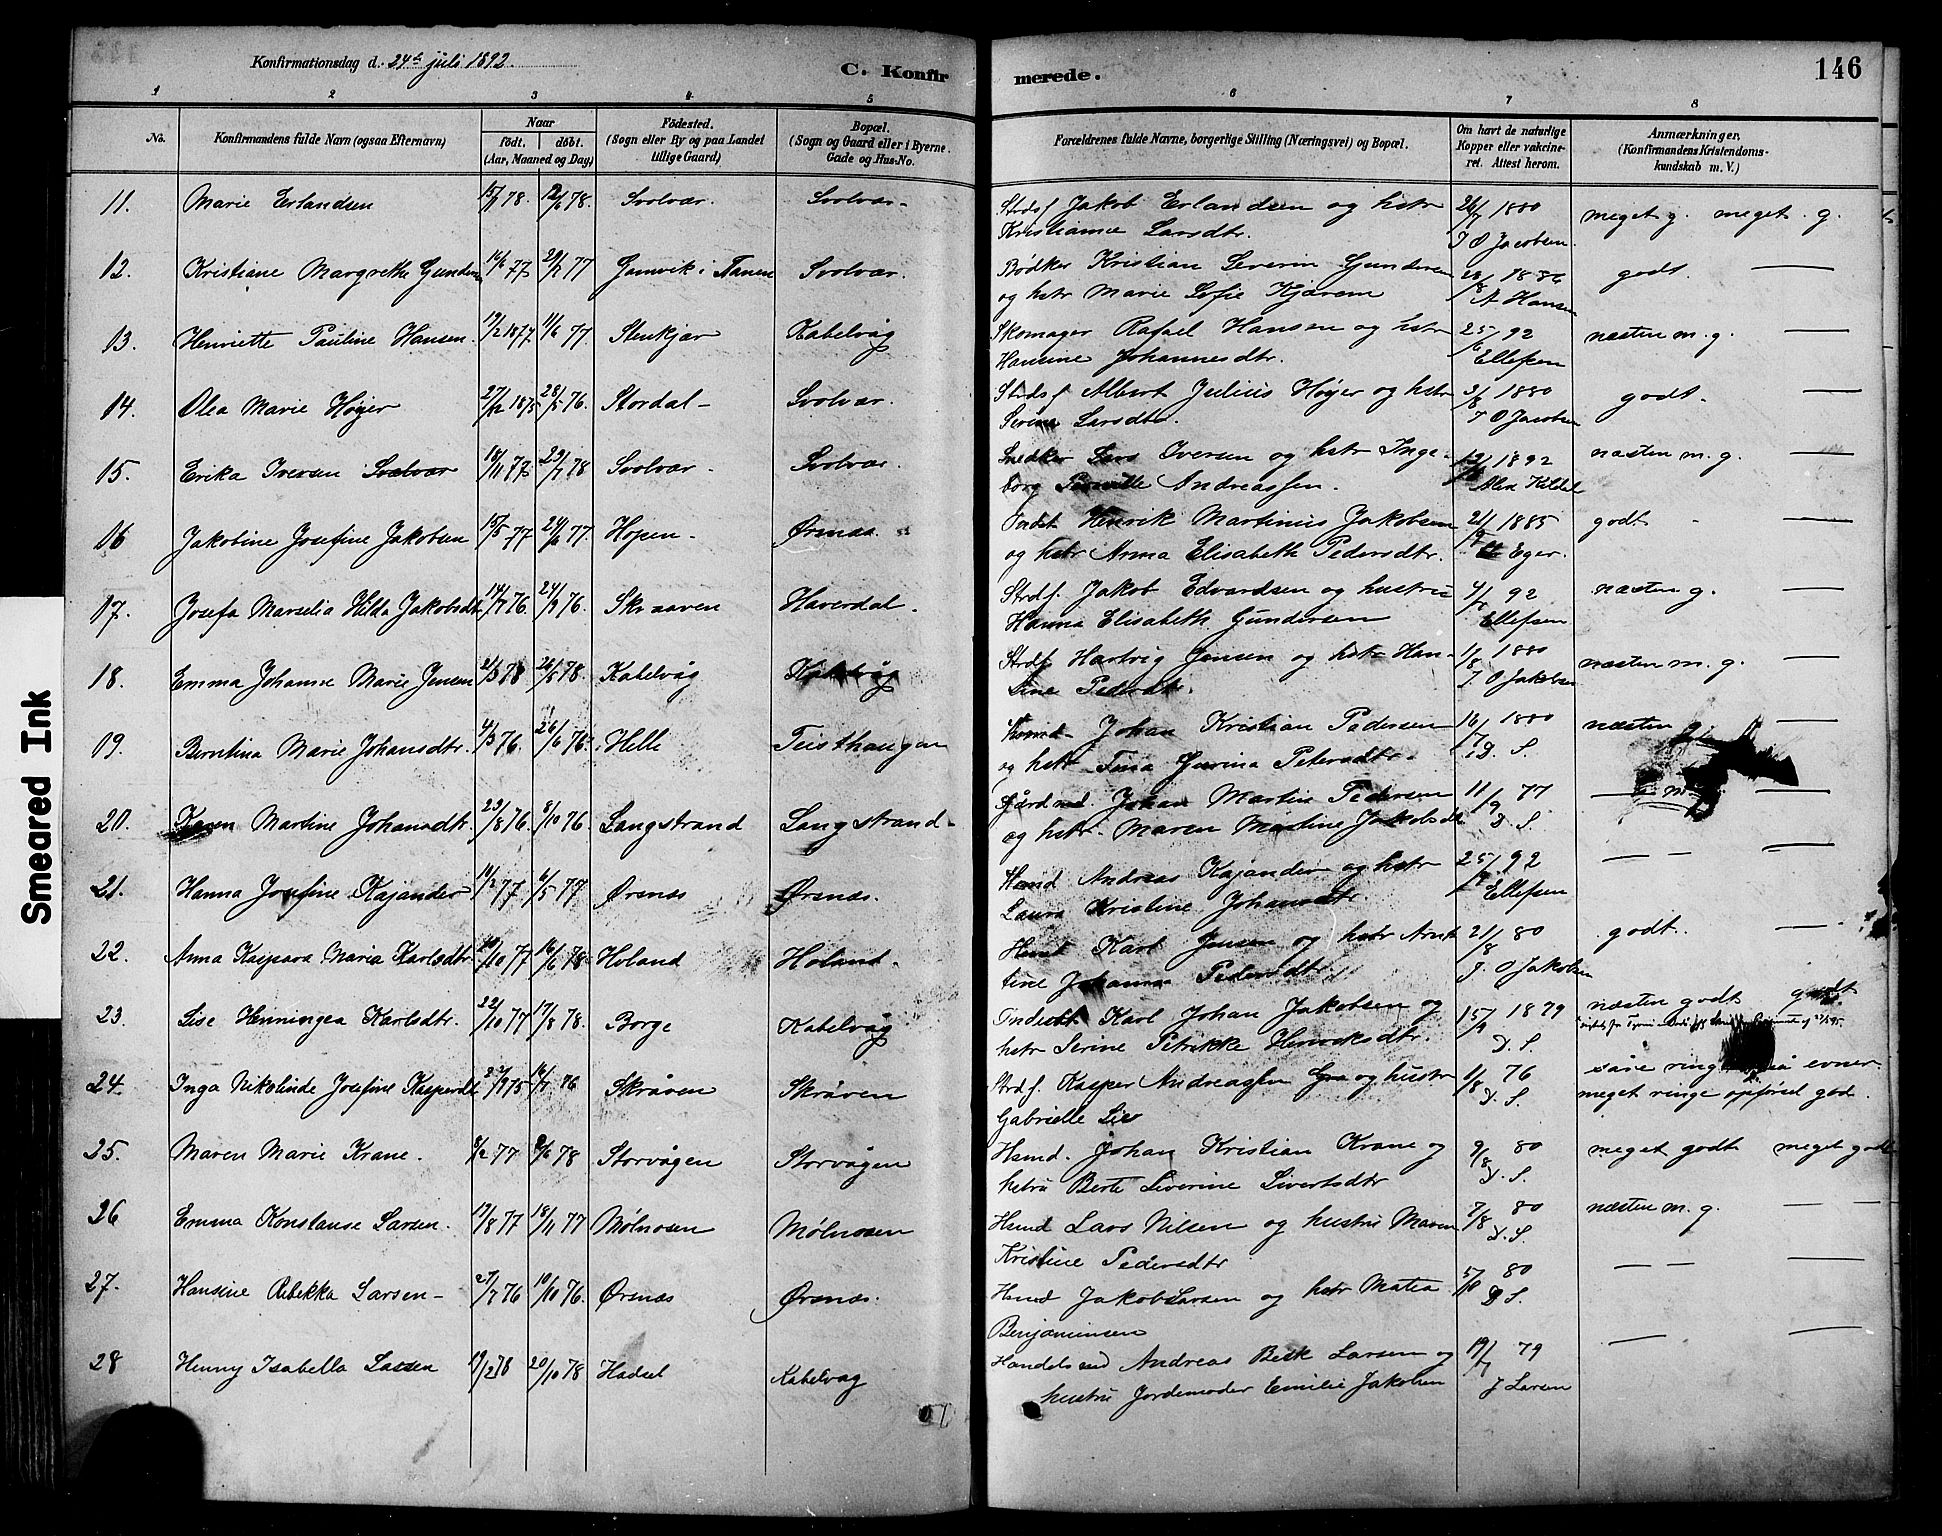 Konfirmationsdag d. 24de juli 1892.
C. Konfirmerede.
146
1 2 3 4 5 6 7 8
No. Konfirmandens fulde Navn (ogsaa Efternavn) Naar født. døbt. (Aar, Maaned og Dag) Fødested. (Sogn eller By og paa Landet tillige Gaard) Bopæl. (Sogn og Gaard eller i Byerne Gade og Hus-No. Forældrenes fulde Navne, borgerlige Stilling (Næringsvei) og Bopæl. Om havt de naturlige Kopper eller vakcineret. Attest herom. Anmærkninger. (Konfirmandens Kristendomskundskab m. V.)
11. Marie Erlandsen 78. 12/6 78. Svolvær. Svolvær. Strdsf. Jakob Erlandsen og hstr 26/7 1880 meget g. meget g.
Kristianne Larsdtr. J O Jacobsen.
12. Kristiane Margrethe 77 77 Gamvik i Tanen Svolvær. Bødker Kristian Severin Gundersen 1886 godt. —
og hstr Marie Sofie Kjærem A Hansen
13. Henriette Pauline Hansen. 19/2 1877 11/6 77 Stenkjær Kabelvåg Skomager Rafael Hansen og hstr 25/6 92 næsten m. g. —
Hansine Johannesdtr. Ellefsen
14. Olea Marie Høyer 27/12 1875 28/5 76. Stordal Svolvær. Strdsf Albert Julius Høyer og hstr 2/8 1880 godt. —
Serina Larsdtr. J O Jacobsen
15. Erika Iversen Svolvær 18/11 77 78 Svolvær. Svolvær. Snedker Lars Iversen og hstr Inge- 1892 næsten m. g. —
borg Andreassen.
16 Jakobine Josefine Jakobsen 15/5 77 24/6 77 Hopen. Ørsnæs. Henrik Martinus Jakobsen 1885 godt —
og hstr Anna Elisabeth Pedersdtr. Eger.
17. Josefa Marselia Hilda Jakobsdtr 14/7 76. 24/9 76. Skraaven Haverdal. Strdf. Jakob Edvardsen og hustru 92 næsten g. —
Hanna Elisabeth Gundersen Ellefsen
18. Emma Johanne Marie Jensen 21/3 78 26/8 78. Kabelvåg Kabelvåg Strdf Hartvig Jensen og hstr Han- 11/8 1880 næsten m. g. —
sine Pedersdtr. J. O Jakobsen
19. Berntina Marie Johansdtr. 4/3 76. 26/6 76. Helle Teisthaugen Johan Kristian Pedersen 16/7 1880 næsten g. —
og hstr Tina Gurina Petersdtr. D. S.
20. Karen Martine Johansdtr. 23/8 76. 8/10 76. Langstrand Langstrand Gårdmd. Johan Martin Pedersen 11/9 77 —
og hstr. Maren Martine Jakobsdtr D. S.
21. Hanna Josefine Kajander 10/2 77. 6/5 77 Ørsnæs Ørsnæs. Hsmd Andreas Kajander og hstr 25/6 92 — — —
Laura Kristine Johansdtr. Ellefsen
22. Anna Kaspara Maria Karlsdtr. 19/10 77 16/6 78. Holand Holand. Hsmd Karl Jensen og hstr Arnt- 21/8 80 godt. —
tine Johanna Pedersdtr. J. O Jakobsen
23. Lise Henningea Karlsdtr. 22/10 77 17/8 78. Borge Kabelvåg Indrcst Karl Johan Jakobsen og 15/9 1879 næsten godt godt
hstr Serine Petrikke Henriksdtr. D. S.
24. Inga Nikolinde Josefine Kaspersdtr 75 16/7 76 Skråven Skråven Strdf. Kasper Andreassen og hustr 1/8 76 såre evner
Gabrielle Lie D. S. meget ringe opførsel god.
25. Maren Marie Krane. 8/2 77 78 Storvågen Storvågen Hsmd. Johan Kristian Krane og 9/8 80 meget godt meget godt
hstru Berte Severine Sivertsdtr D. S.
26 Emma Konstanse Larsen. 17/8 77 18/11 77 Mølnosen Mølnosen Hsmd Lars Nilsen og hustru Maren 7/8 80 næsten m. g. —
Kristine Pedersdtr D. S.
27. Hansine Rebekka Larsen 27/7 76 10/10 76. Ørsnæs Ørsnæs. Hsmd Jakob Larsen og hstr Matea 5/8 80 — — —
Benjaminsen D S.
28 Henny Isabella Larsen 19/12 78 20/10 78 Hadsel Kabelvag Handelsmd Andreas Beck Larsen og 19/7 79 — —
hustru Jordemoder Emilie Jakobsen J Larsen
Smeared Ink